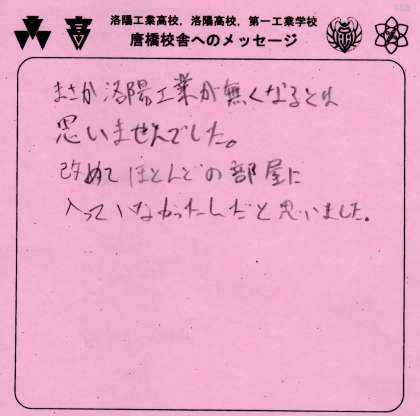 洛陽工業高校，洛陽高校，第一工業学校
唐橋校舎へのメッセージ
まさか洛陽工業が無くなるとは
思いませんでした。
改めてほとんどの部屋に
入っていなかったんだと思いました。